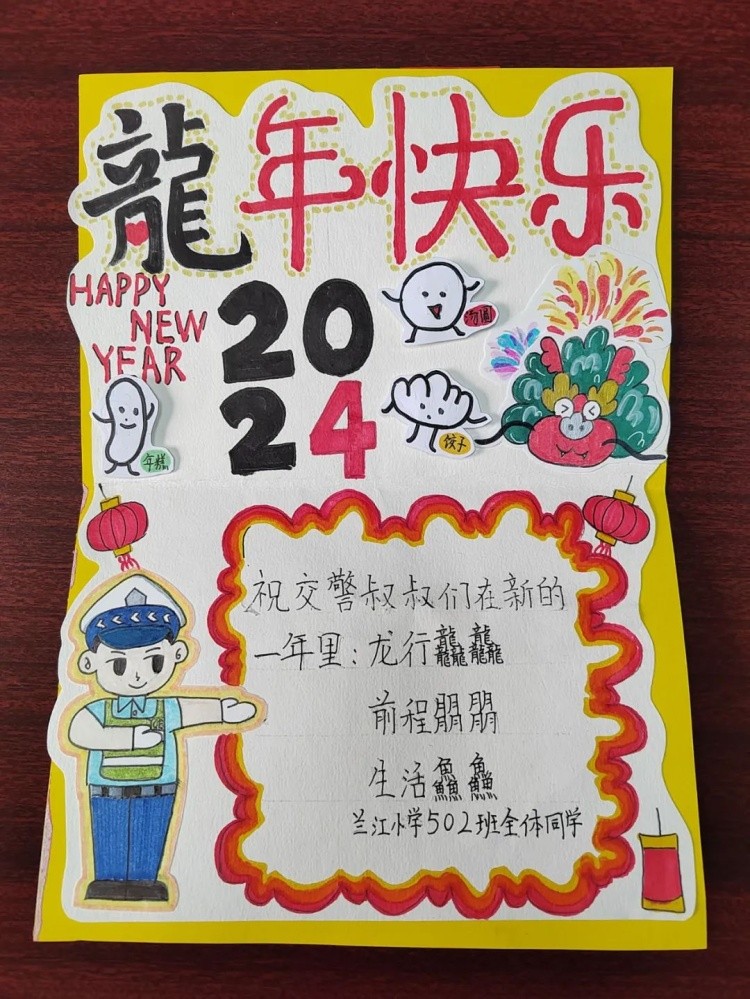 龍年快乐
HAPPY
NEW
YEAR
20
24
汤圆
饺子
年糕
祝交警叔叔们在新的
一年里：龙行龘龘
前程朤朤
生活鱻鱻
兰江小学502班全体同学